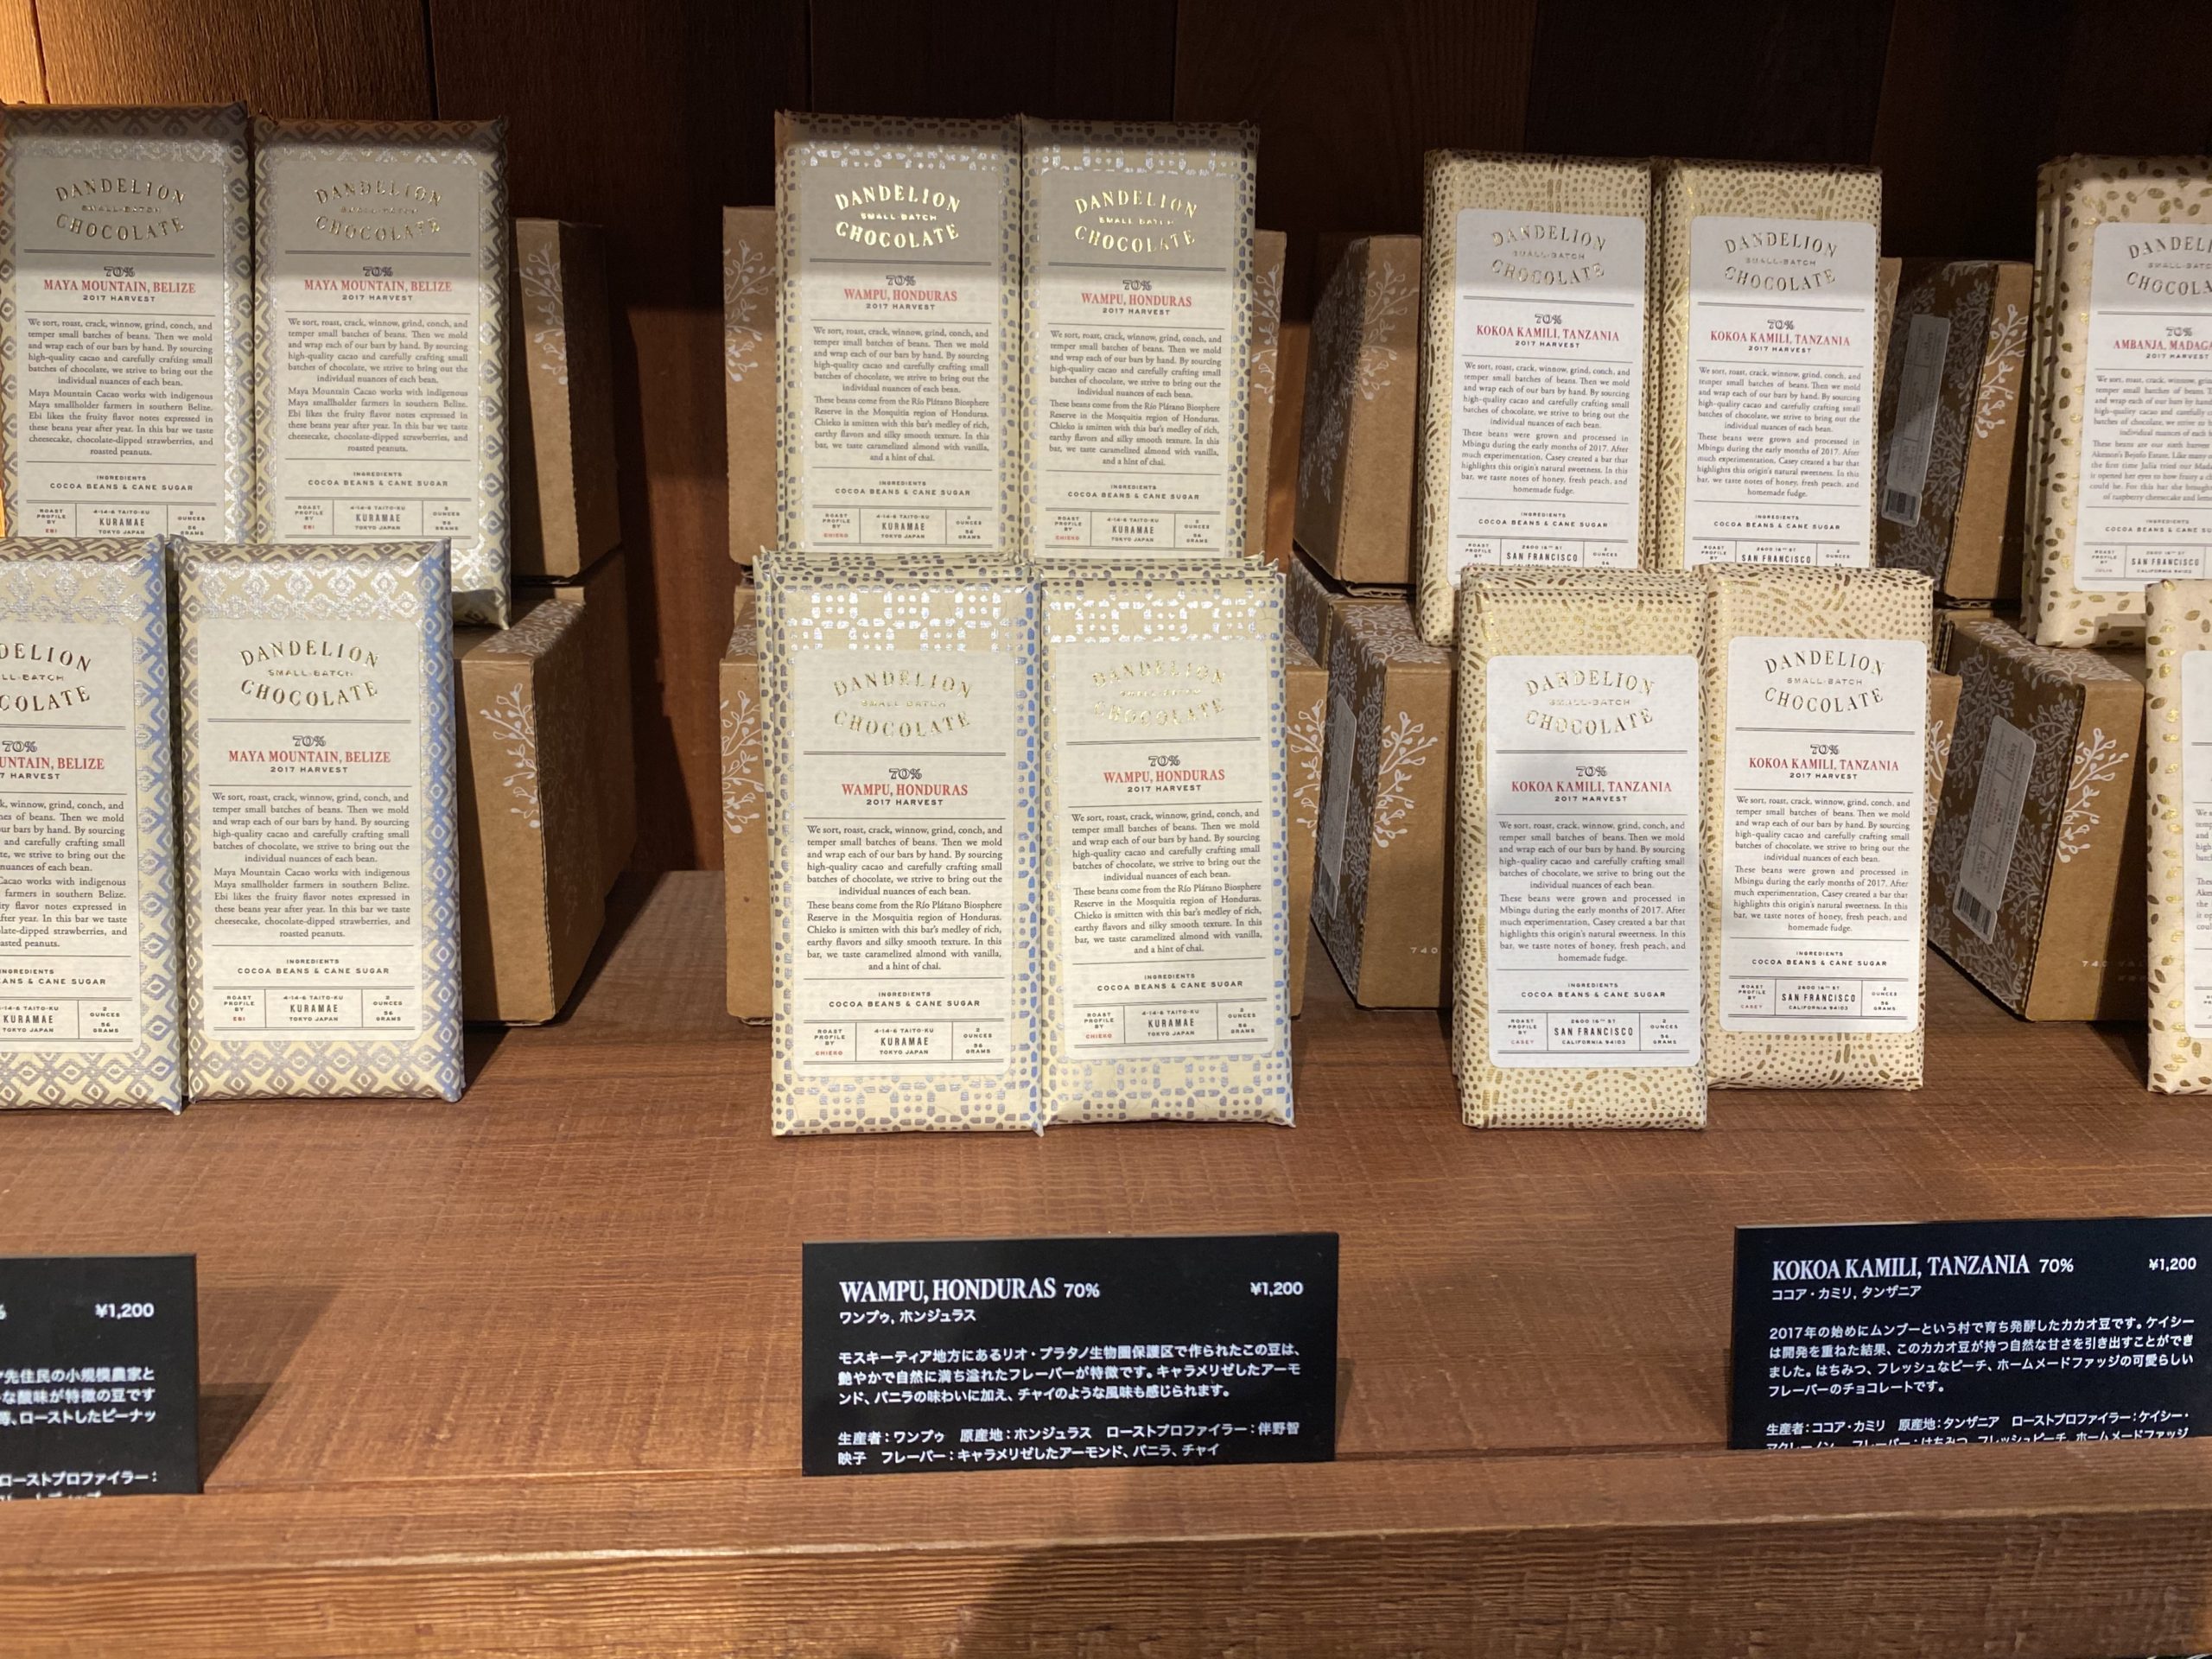 DANDELION
SMALL-BATCH
CHOCOLATE
70%
MAYA MOUNTAIN, BELIZE
2017 HARVEST
We sort, roast, crack, winnow, grind, conch, and
temper small batches of beans. Then we mold
and wrap each of our bars by hand. By sourcing
high-quality cacao and carefully crafting small
batches of chocolate, we strive to bring out the
individual nuances of each bean.
Maya Mountain Cacao works with indigenous
Maya smallholder farmers in southern Belize.
Ebi likes the fruity flavor notes expressed in
these beans year after year. In this bar we taste
cheesecake, chocolate-dipped strawberries, and
roasted peanuts.
INGREDIENTS
COCOA BEANS & CANE SUGAR
ROAST
PROFILE
BY
EBI
4-14-6 TAITO-KU
KURAMAE
TOKYO JAPAN
2
OUNCES
56
GRAMS
DANDELION
SMALL-BATCH
CHOCOLATE
70%
WAMPU, HONDURAS
2017 HARVEST
We sort, roast, crack, winnow, grind, conch, and
temper small batches of beans. Then we mold
and wrap each of our bars by hand. By sourcing
high-quality cacao and carefully crafting small
batches of chocolate, we strive to bring out the
individual nuances of each bean.
These beans come from the Río Plátano Biosphere
Reserve in the Mosquitia region of Honduras.
Chieko is smitten with this bar's medley of rich,
earthy flavors and silky smooth texture. In this
bar, we taste caramelized almond with vanilla,
and a hint of chai.
INGREDIENTS
COCOA BEANS & CANE SUGAR
ROAST
PROFILE
BY
CHIEKO
4-14-6 TAITO-KU
KURAMAE
TOKYO JAPAN
2
OUNCES
56
GRAMS
DANDELION
SMALL-BATCH
CHOCOLATE
70%
KOKOA KAMILI, TANZANIA
2017 HARVEST
We sort, roast, crack, winnow, grind, conch, and
temper small batches of beans. Then we mold
and wrap each of our bars by hand. By sourcing
high-quality cacao and carefully crafting small
batches of chocolate, we strive to bring out the
individual nuances of each bean.
These beans were grown and processed in
Mbingu during the early months of 2017. After
much experimentation, Casey created a bar that
highlights this origin's natural sweetness. In this
bar, we taste notes of honey, fresh peach, and
homemade fudge.
INGREDIENTS
COCOA BEANS & CANE SUGAR
ROAST
PROFILE
BY
CASEY
2600 16TH ST
SAN FRANCISCO
CALIFORNIA 94103
2
OUNCES
56
GRAMS
70%
AMBANJA, MADAGA
2017 HARVEST
¥1,200
先住民の小規模農家と
な酸味が特徴の豆です
等、ローストしたピーナッ
ローストプロファイラー：
WAMPU, HONDURAS 70% ¥1,200
ワンプゥ, ホンジュラス
モスキーティア地方にあるリオ・プラタノ生物圏保護区で作られたこの豆は、
艶やかで自然に満ち溢れたフレーバーが特徴です。キャラメリゼしたアーモ
ンド、バニラの味わいに加え、チャイのような風味も感じられます。
生産者：ワンプゥ 原産地：ホンジュラス ローストプロファイラー：伴野智
映子 フレーバー：キャラメリゼしたアーモンド、バニラ、チャイ
KOKOA KAMILI, TANZANIA 70% ¥1,200
ココア・カミリ, タンザニア
2017年の始めにムンブーという村で育ち発酵したカカオ豆です。ケイシー
は開発を重ねた結果、このカカオ豆が持つ自然な甘さを引き出すことができ
ました。はちみつ、フレッシュなピーチ、ホームメードファッジの可愛らしい
フレーバーのチョコレートです。
生産者：ココア・カミリ 原産地：タンザニア ローストプロファイラー：ケイシー・
マクレーノン フレーバー：はちみつ、フレッシュピーチ、ホームメードファッジ